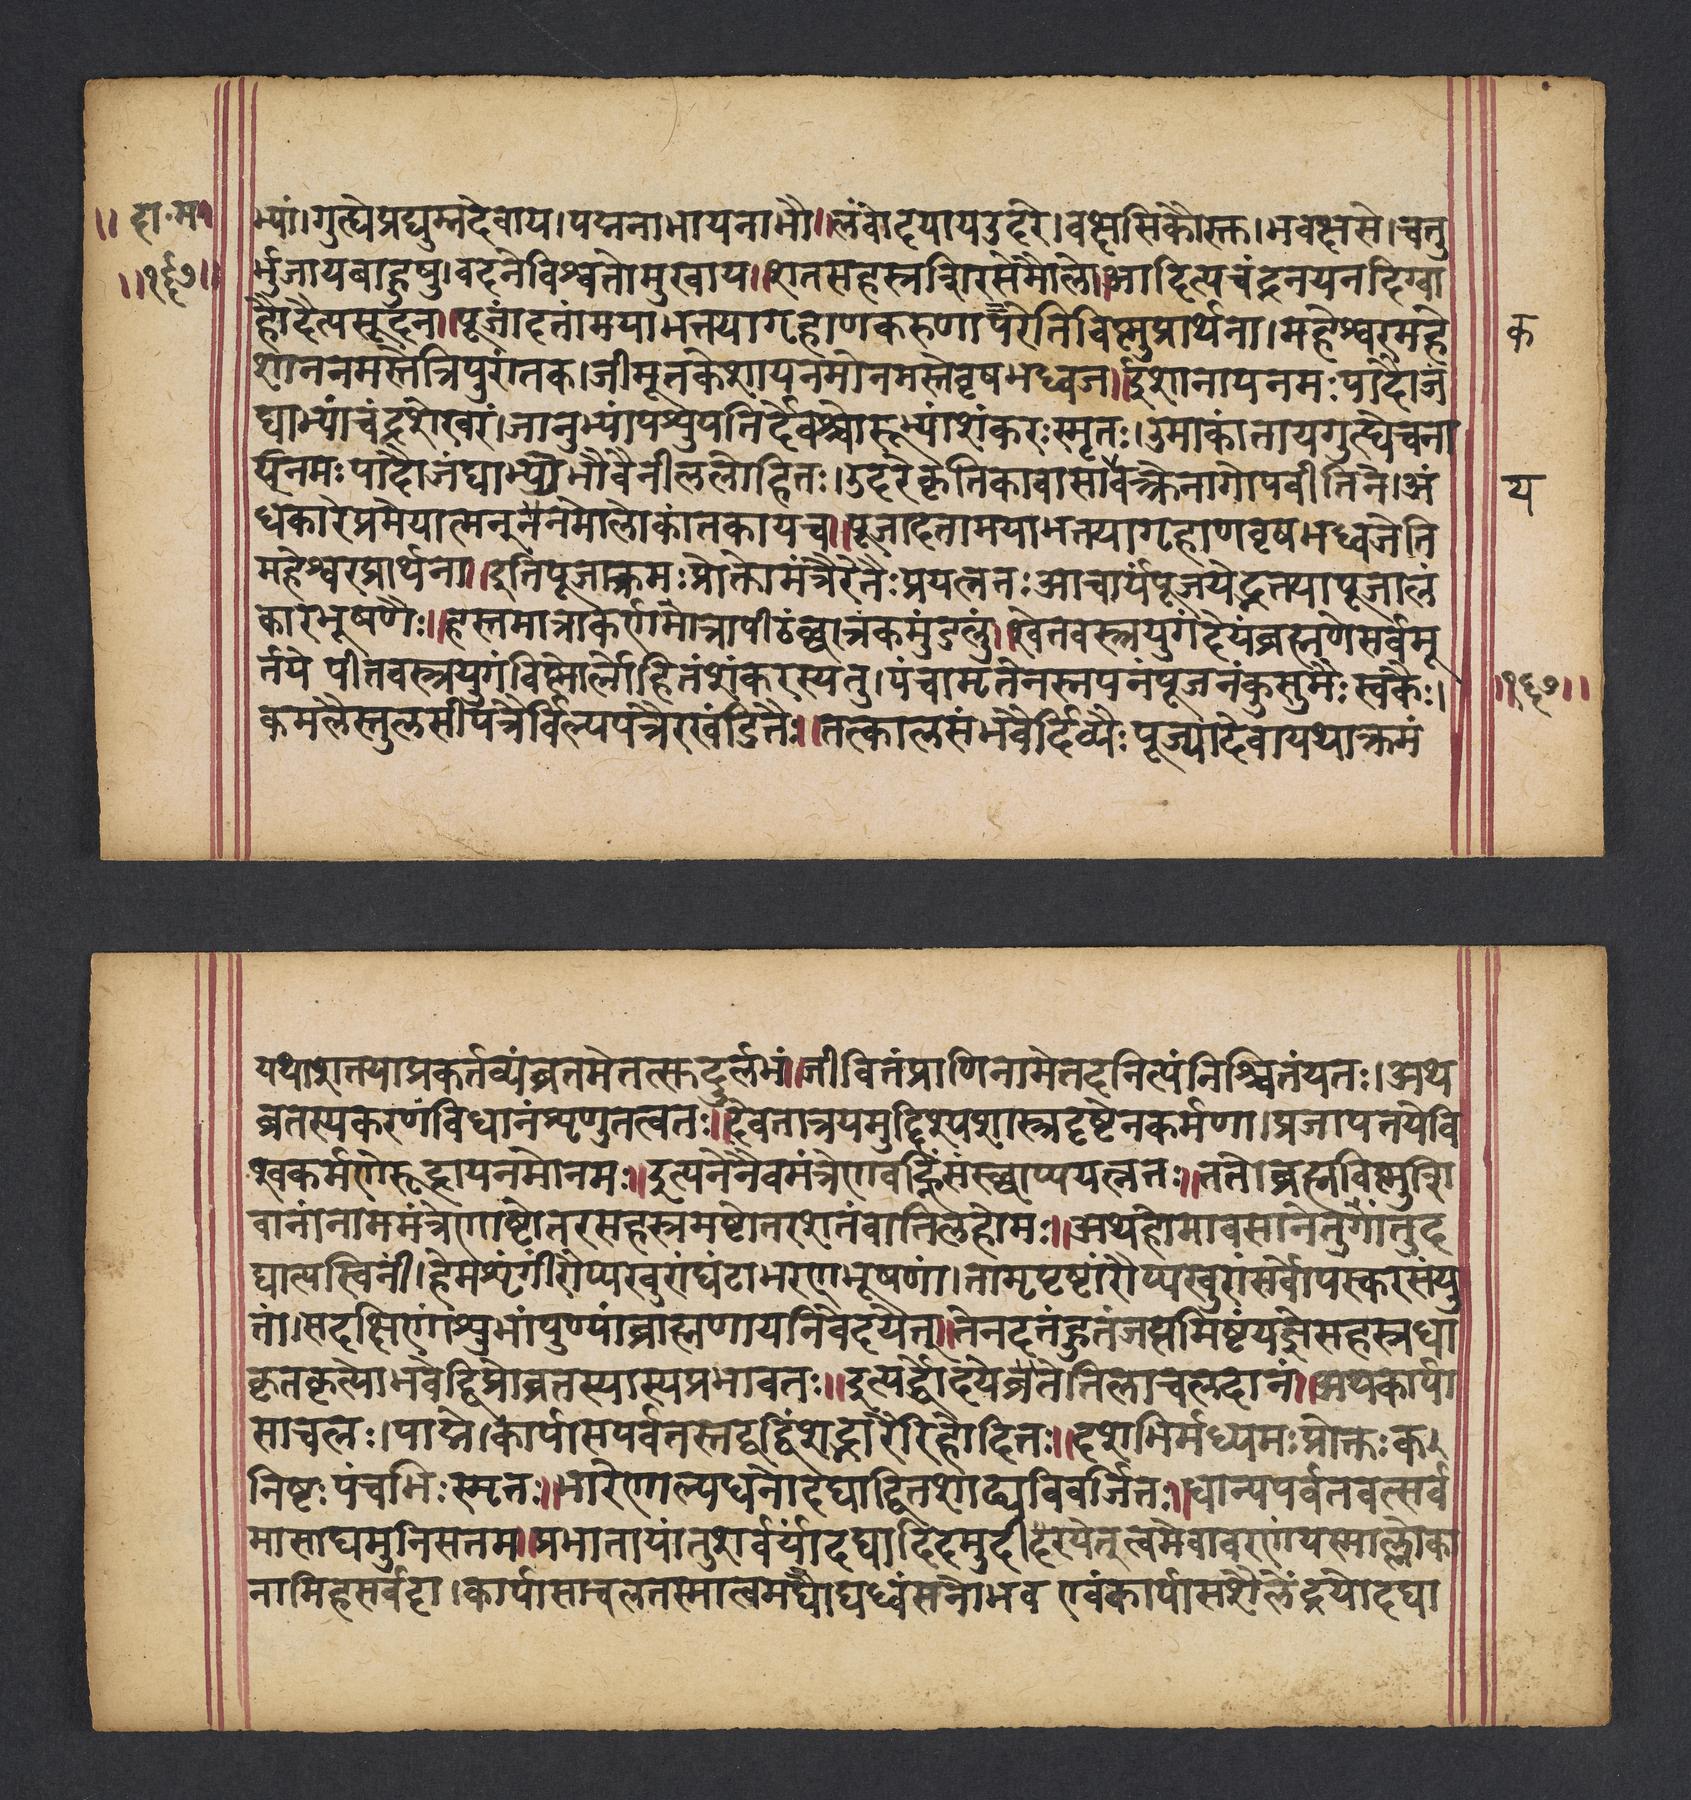 ॥ दा॰म॰
॥१६७॥
भ्यां।गुत्द्येप्रद्युम्नदेवाय।पद्मनाभायनाभौ॥लंबोदयायउदरे।वक्षसिकौस्तु।भवक्षसे।चतु
र्भुजायबाहुषु।वदनेविश्वतोमुखाय॥शतसहस्रशिरसेमौलौ॥आदित्यचंद्रनयनदिग्बा
होदैत्यसूदन॥पूजांदत्तांमयाभक्त्यागृहाणकरुणापरेतिविष्णुप्रार्थना।महेश्वरमहे
शाननमस्तेत्रिपुरांतक।जीमूतकेशायनमोनमस्तेवृषभध्वज॥ईशानायनमःपादौजं
घाभ्यांचंद्रशेखरं।जानुभ्यांपशुपतिर्देवश्चोरूभ्यांशंकरःस्मृतः।उमाकांतायगुत्द्येचना
यिनमःपादौजंघाभ्यौभौवैनीललोहितः।उदरेकृत्तिकावासावक्त्रेनागोपवीतिने।अं
धकारेप्रमेयात्मनूनेनमोलोकांतकायच॥पूजादत्तामयाभक्त्यागृहाणवृषभध्वजेति
महेश्वरप्रार्थना॥इतिपूजाक्रमःप्रोक्तोमंत्रैरेतैःप्रयत्नतःआचार्यंपूजयेद्भक्त्यापूजालं
कारभूषणैः॥हस्तमात्राकर्णमात्रापीठंछात्रंकमंडलुं॥श्वेतवस्त्रयुगंदेयंब्रह्मणेसर्वमू
र्तये पीतवस्त्रयुगंविष्णोर्लोहितंशंकरस्यतु।पंचामृतेनस्नपनंपूजनंकुसुमैःस्वकैः।
कमलैस्तुलसीपत्रैर्विल्यपत्रैरखंडितैः॥तत्कालसंभवैर्दिव्यैःपूज्यादेवायथाक्रमं
क
य
॥१६७॥
यथाशक्त्याप्रकर्तव्यंव्रतमेतत्सुदुर्लभं॥जीवितंप्राणिनामेतदनित्यंनिश्चितंयतः।अथ
व्रतस्यकरणंविधानंशृणुतत्वतः॥दैवतात्रयमुद्दिश्यशास्त्रदृष्टेनकर्मणा।प्रजापतयेवि
श्वकर्मणेरुद्रायनमोनमः॥इत्यनेनैवमंत्रेणवह्निंसंस्थाप्ययत्नतः॥ततोब्रह्मविष्णुशि
वानांनाममंत्रेणाष्टोतरसहस्रमष्टोतरशतंवातिलहोमः॥अथहोमावसानेतुगांतुद
द्यात्पस्विनीं।हेमशृंगींरौप्यखुरांघंटाभरणभूषणां।ताम्रपृष्टांरौप्यखुरांसर्वोपस्करसंयु
तां।सदक्षिणांशुभांपुण्यांब्राह्मणायनिवेदयेत्॥तेनदत्तंहुतंजप्तमिष्टंयज्ञैसहस्रधा
कृतकृत्योभवेद्विप्रोव्रतस्यास्यप्रभावतः॥इत्यर्द्धोदयेव्रतेतिलाचलदानं॥अथकार्पा
साचलः।पाद्मे।कार्पासपर्वतस्तद्वद्विंशद्भारैरिहोदितः॥दशभिर्मध्यमःप्रोक्तःक
निष्टःपंचभिःस्मृतः॥भारेणाल्पधनोदद्याद्वित्तशाठ्यविवर्जितः॥धान्यपर्वतवत्सर्व
मासाद्यमुनिसत्तम॥प्रभातायांतुशर्वर्यांदद्यादिदमुदीरयेत्त्वमेवावरणंयस्माल्लोका
नामिहसर्वदा।कार्पासाचलतस्मात्वमघौघध्वंसनोभव एवंकार्पासशैलेंद्रयोदद्या